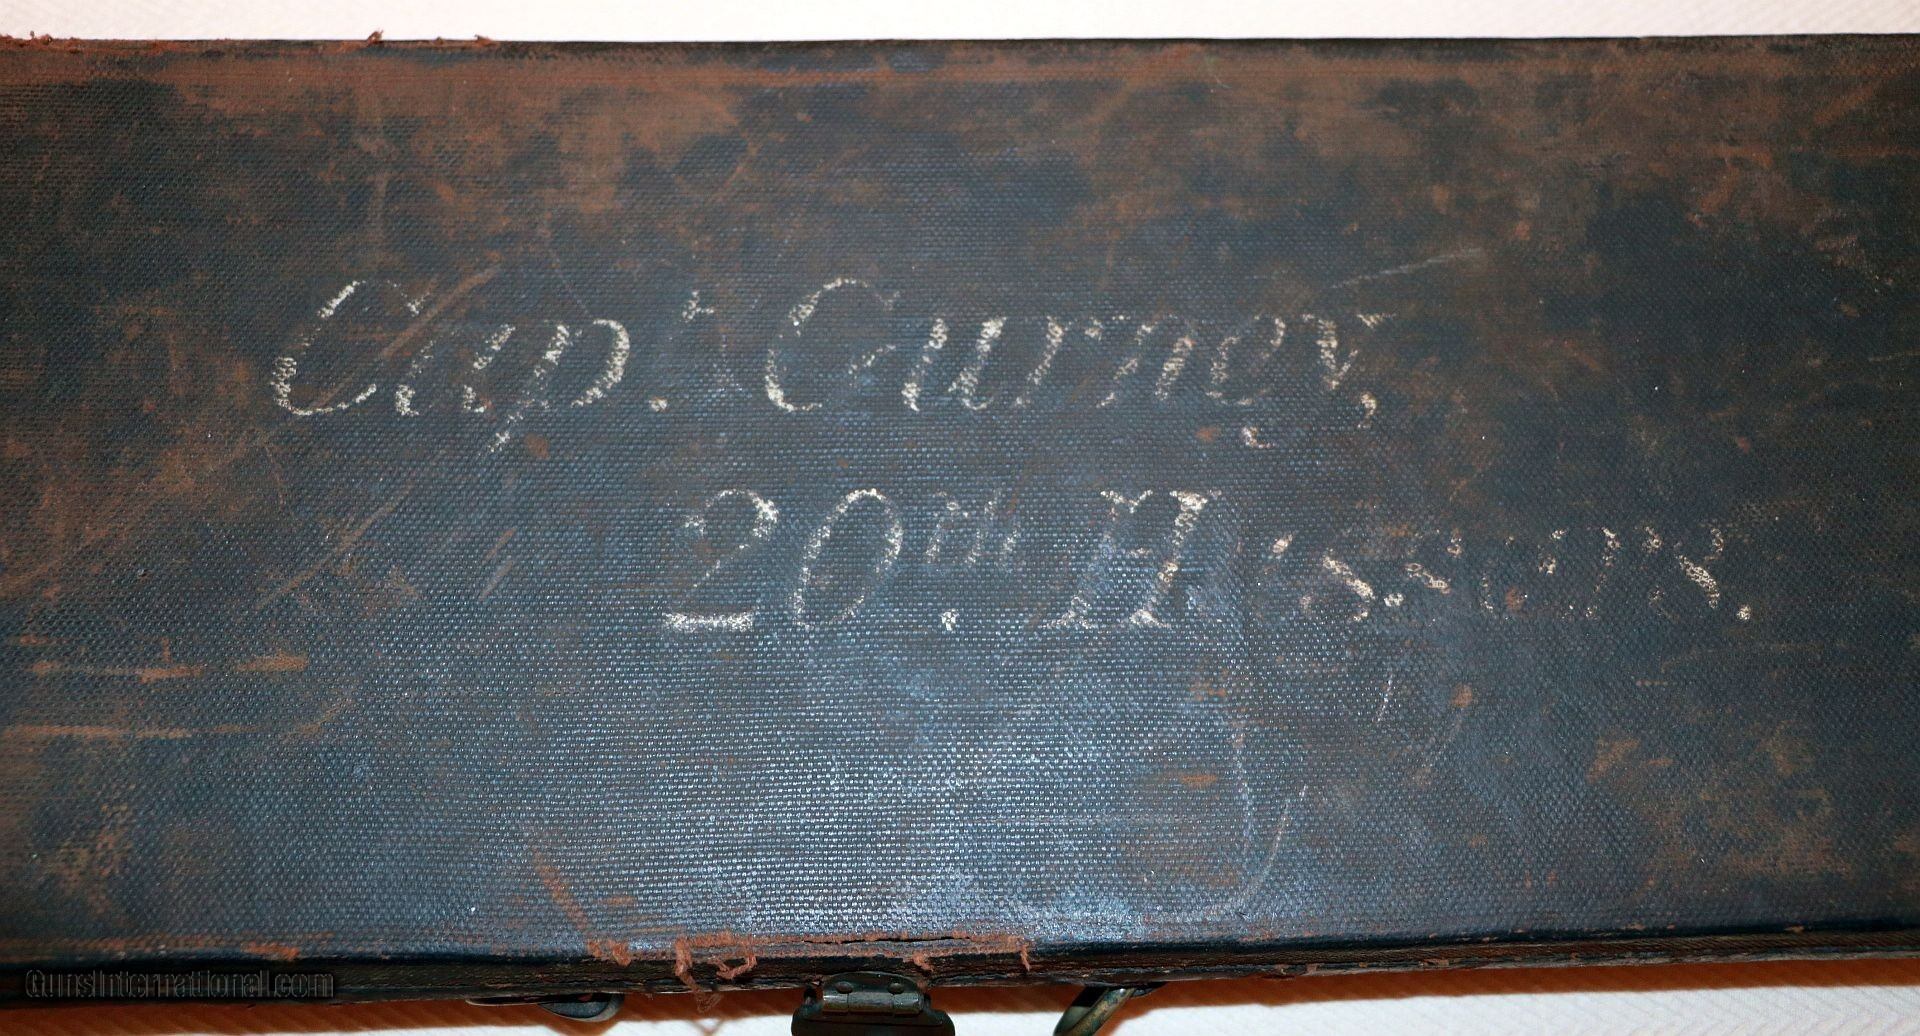 Capt. Gurney,
20th. Hussars.
GunsInternational.com